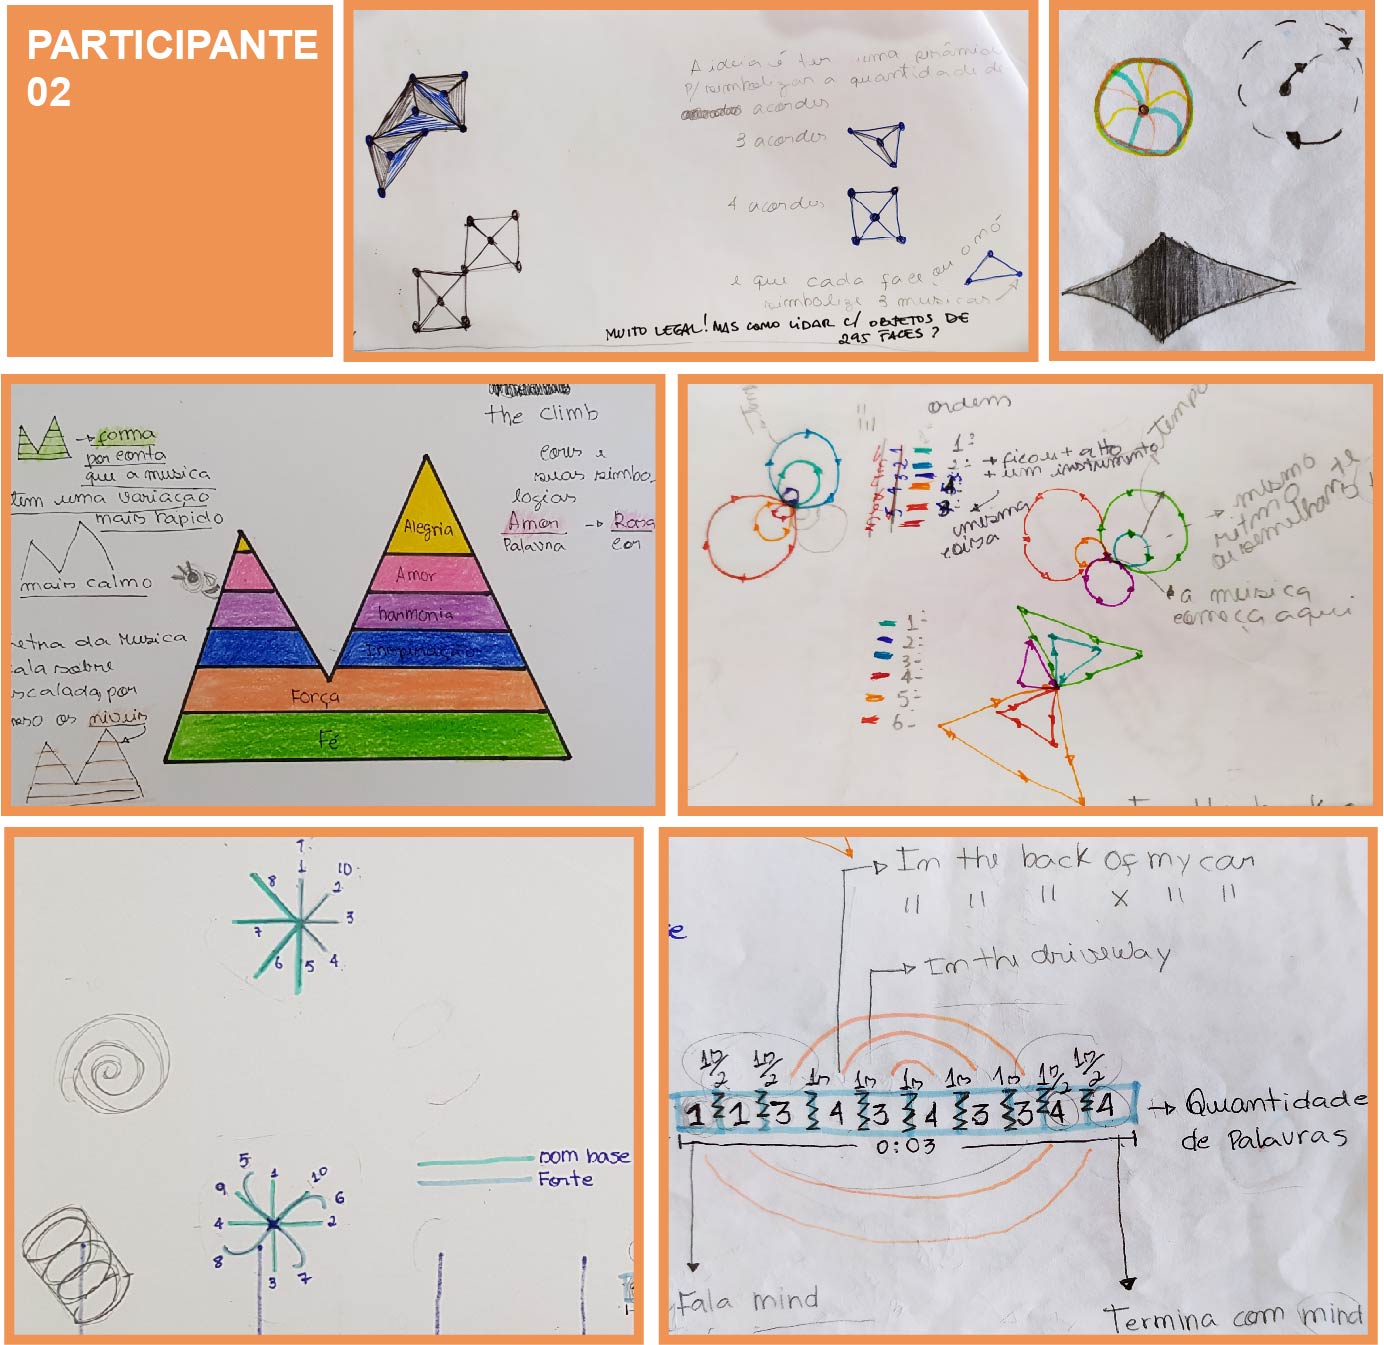 PARTICIPANTE
02
A ideia é ter uma pirâmide
P/ simbolizar a quantidade de
acordes
3 acordes
4 acordes
e que cada face ou o nó
simbolize 3 musicas
MUITO LEGAL! MAS COMO LIDAR C/ OBJETOS DE
295 FACES?
forma
por conta
que a musica
tem uma variação
mais rapido
mais calmo
letra da Musica
fala sobre
escalada, por
isso os níveis
the climb
cores e
suas simbo
logias
Amor Rosa
Palavra cor
Alegria
Amor
harmonia
Inspiração
Força
Fé
ordem
1-
2-
+ ficou + alto
+ um instrumento
mesma
coisa
tempo
mesmo
ritmo
ou semelhante
a musica
começa aqui
1-
2-
3-
4-
5-
6-
1
10
2
3
4
5
6
7
8
5
1
10
6
2
7
3
8
4
9
Som base
Forte
In the back of my car
" " " x " "
In the driveway
e
1n/2 1n/2 1n 1n 1n 1n 1n 1n/2 1n/2
1 1 3 4 3 4 3 3 4 4
Quantidade
de Palavras
0:03
Fala mind
Termina com mind